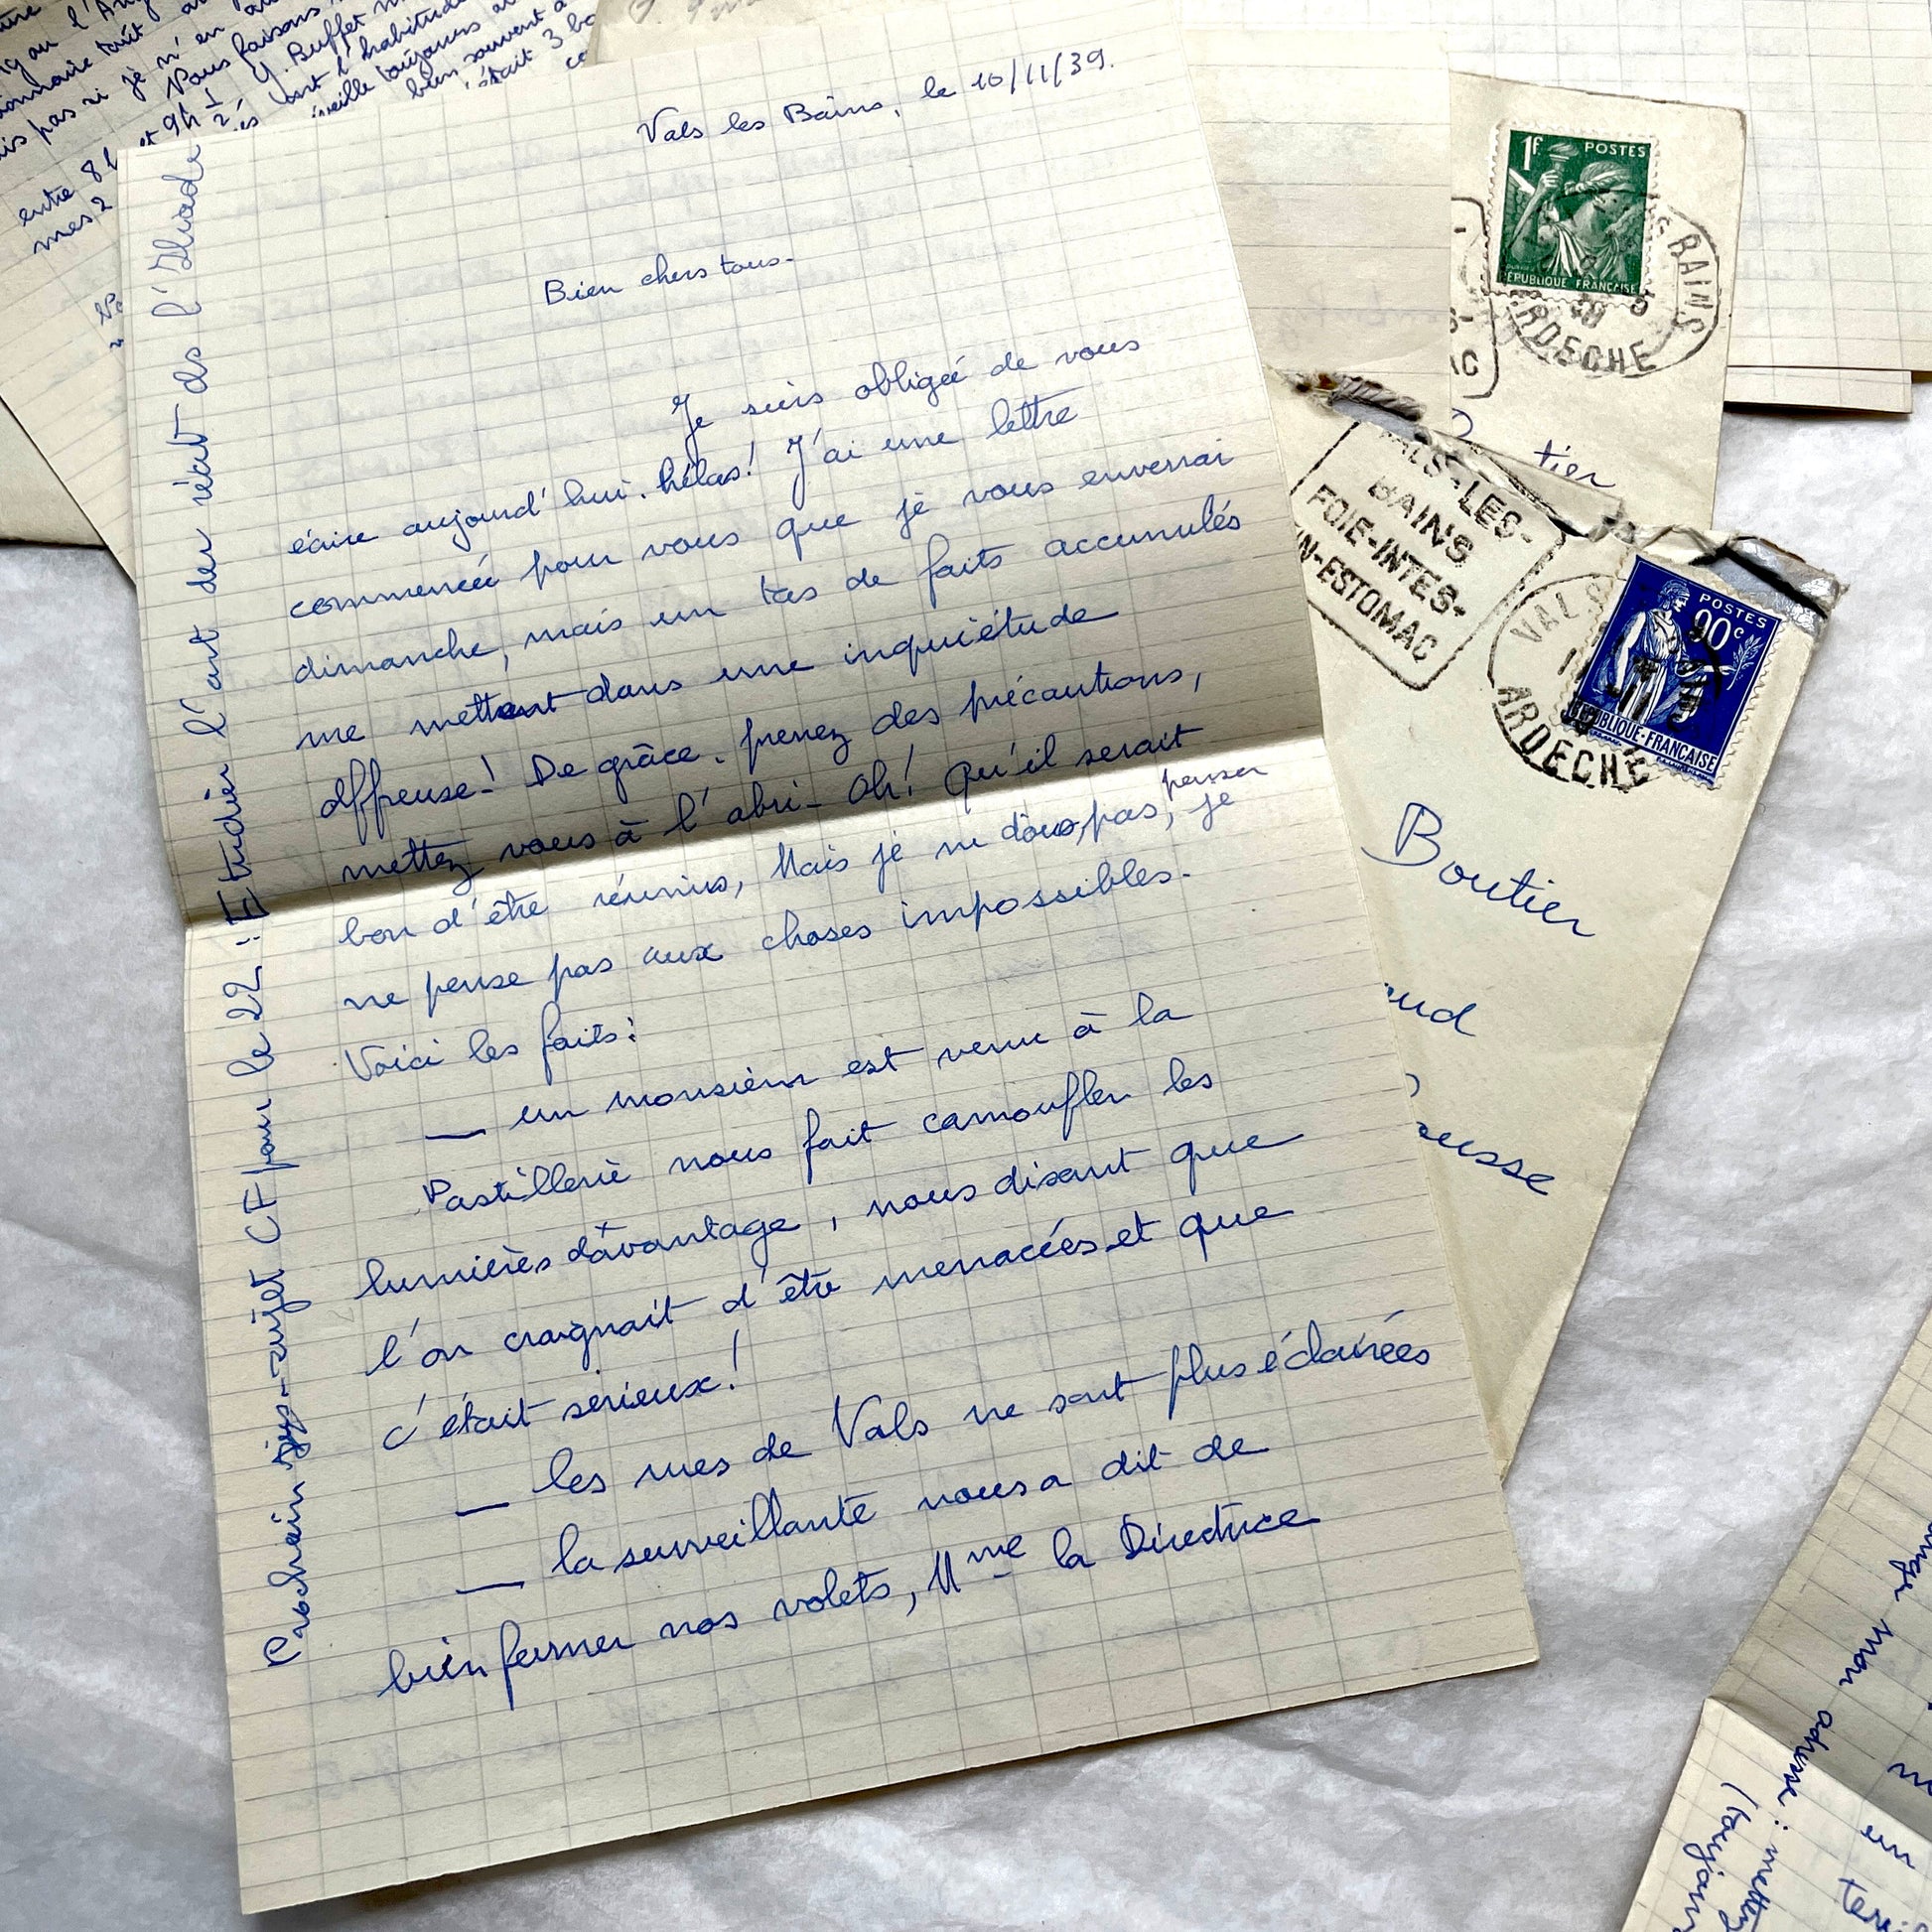 Vals les Bains, le 10/11/39.
Bien chers tous-
Je suis obligée de vous
écrire aujourd'hui. hélas! J'ai une lettre
commencée pour vous que je vous enverrai
dimanche, mais un tas de faits accumulés
me mettent dans une inquiétude
affreuse! De grâce. prenez des précautions,
mettez vous à l'abri- Oh! Qu'il serait
bon d'être réunis, Mais je ne dois, pas, penser je
ne pense pas aux choses impossibles.
Voici les faits:
— un monsieur est venu à la
Pastillerie nous fait camoufler les
lumières davantage, nous disant que
l'on craignait d'être menacées et que
c'était sérieux!
— les rues de Vals ne sont plus éclairées
— la surveillante nous a dit de
bien fermer nos volets, Mme la Directrice
Prochain sujet CF pour le 22 : Etudier l'art des récit ds l'Iliade
entre 8h et 9h 1/2
mes 2
Nous faisons
Y. Buffet
l'habitude
toujours
bien souvent
était 3
1F POSTES
RÉPUBLIQUE FRANÇAISE
BAINS
ARDECHE
tier
VALS-LES-
BAINS
FOIE-INTES-
IN-ESTOMAC
VALS
ARDECHE
POSTES
90c
RÉPUBLIQUE-FRANÇAISE
Boutier
aud
ousse
mon adresse : mettez
toujours